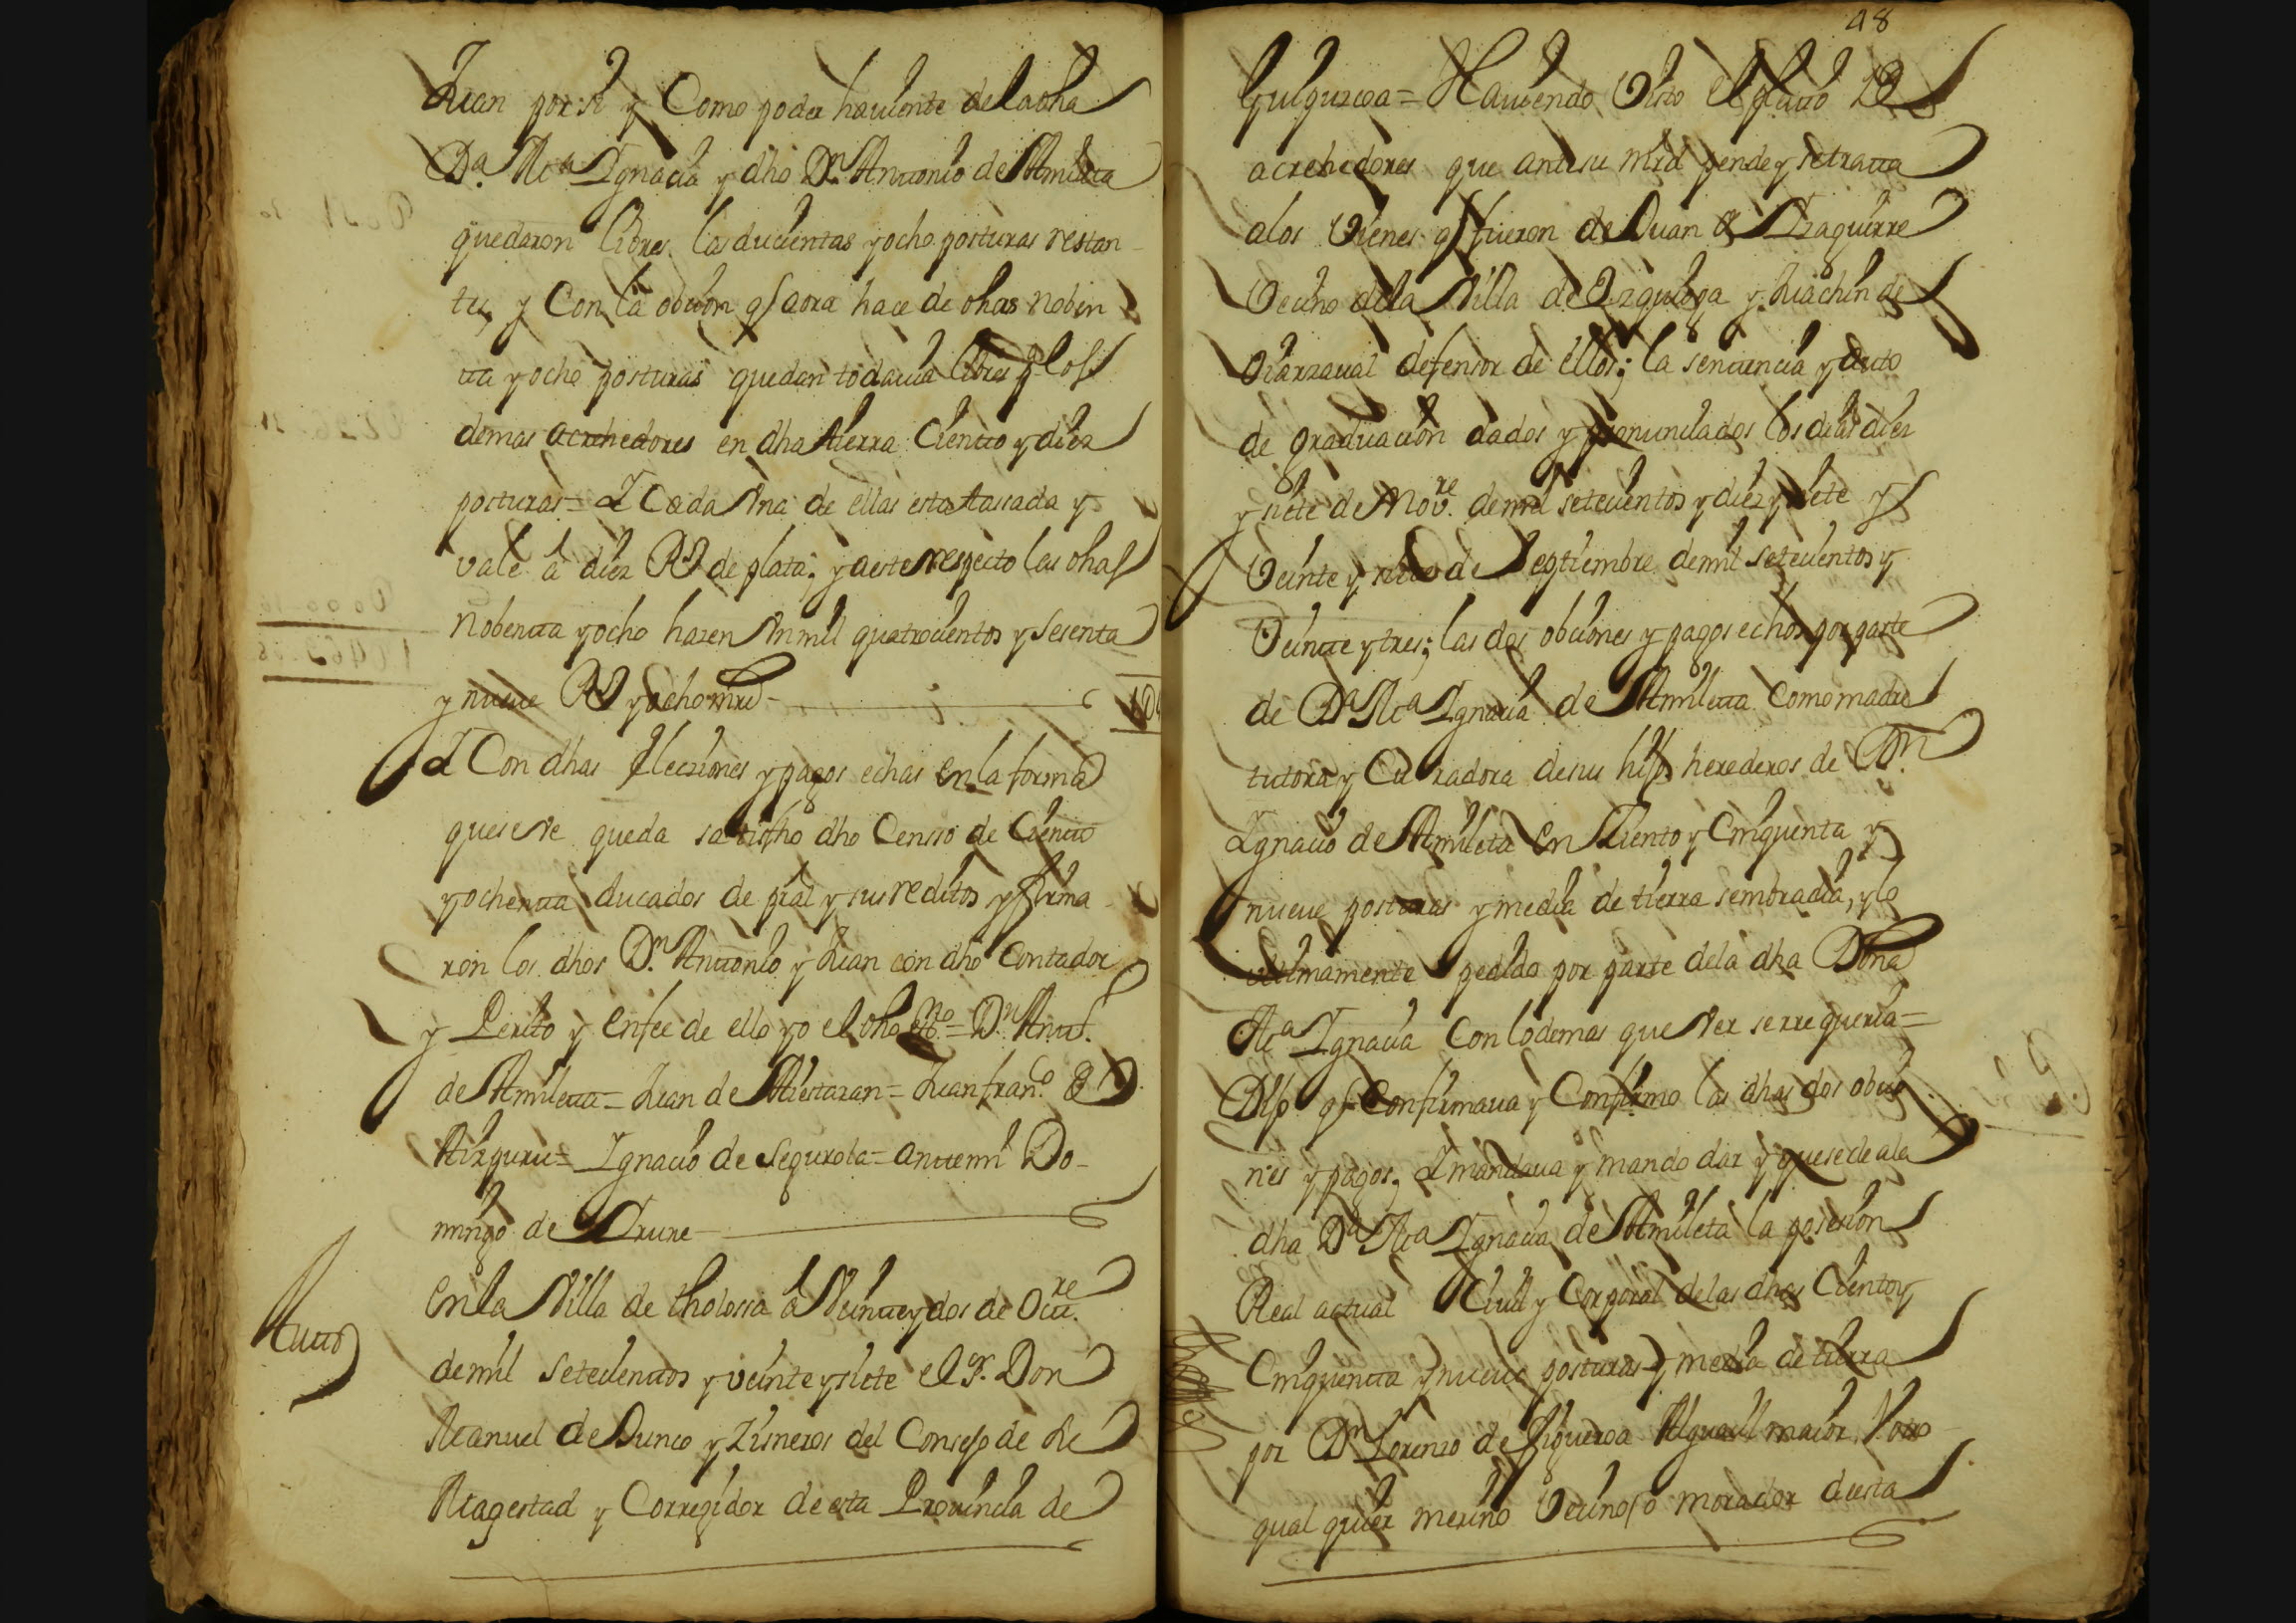 Juan por si y Como poder hauiente de la dha
Dª. Mª Ygnacia y dho Dn. Anttonio de Amilitta
quedaron libres las ducientas y ocho posturas restan-
tes, y Con la obcion q aora hace de dhas nobin
tta y ocho posturas quedan todauia libres p. los
demas acrehedores en dha tierra Cientto y diez
posturas = Y Cada Vna de ellas esta tassada y
vale â diez Rs de plata; y a este respecto las dhas
Nobentta y ocho hazen Vn mil quatrocientos y Sesenta
y nueue Rs y ocho mrs
Y Con dhas Elecziones y pagos echas en la forma
que se ve queda satisfho dho Censso de Cientto
y ochentta ducados de pral y sus reditos y firma-
ron los dhos Dn. Anttonio y Juan con dho Contador
y Perito y en fee de ello yo el dho essno = Dn. Antt.
de Amiletta = Juan de Aiestaran = Juan franco. de
Aizguru = Ygnacio de Segurola = antte mi Do-
mingo de Yrure
Autto
En la Villa de tholossa â Veintte y dos de Octtre.
de mil Setecienttos y veinte y siete el Sr. Don
Manuel de Junco y Zisneros del Consejo de Su
Magestad y Corregidor de esta Prouincia de
48
Guipuzcoa = Hauiendo Visto el pleito de
acrehedores que ante su mrd pende y se tratta
a los Vienes q fueron de Juan de Yzaguirre
Vecino de la Villa de Ezquioga y Juachin de
Oiarzaual defensor de ellos; la sentencia y auto
de graduacion dados y pronunciados los dias diez
y siete de Novre. de mil setecientos y diez y siete y
Veinte y de Septiembre de mil setecientos y
Veintte y tres; las dos obciones y pagos echos por parte
de Dª Mª Ygnacia de Amiletta Como madre
tutora y Curadora de sus hijos herederos de Dn.
Ygnacio de Amileta en Ziento y Cinquenta y
nueue posturas y media de tierra sembradia, y lo
vltimamente pedido por parte de la dha Dona
Mª Ygnacia Con lo demas que Ver se rrequeria =
Dijo q Confirmaua y Confirmo las dhas dos obcio
nes y pagos, Y mandaua y mando dar y que se de a la
dha Dª Mª Ygnacia de Amileta la posesion
Real actual Ciuil y Corporal de las dhas Ciento y
Cinquentta y nueue posturas y media de tierra
por Dn Lorenzo de figueroa Alguacil maior V otro
qual quier merino Vecino o morador de esta